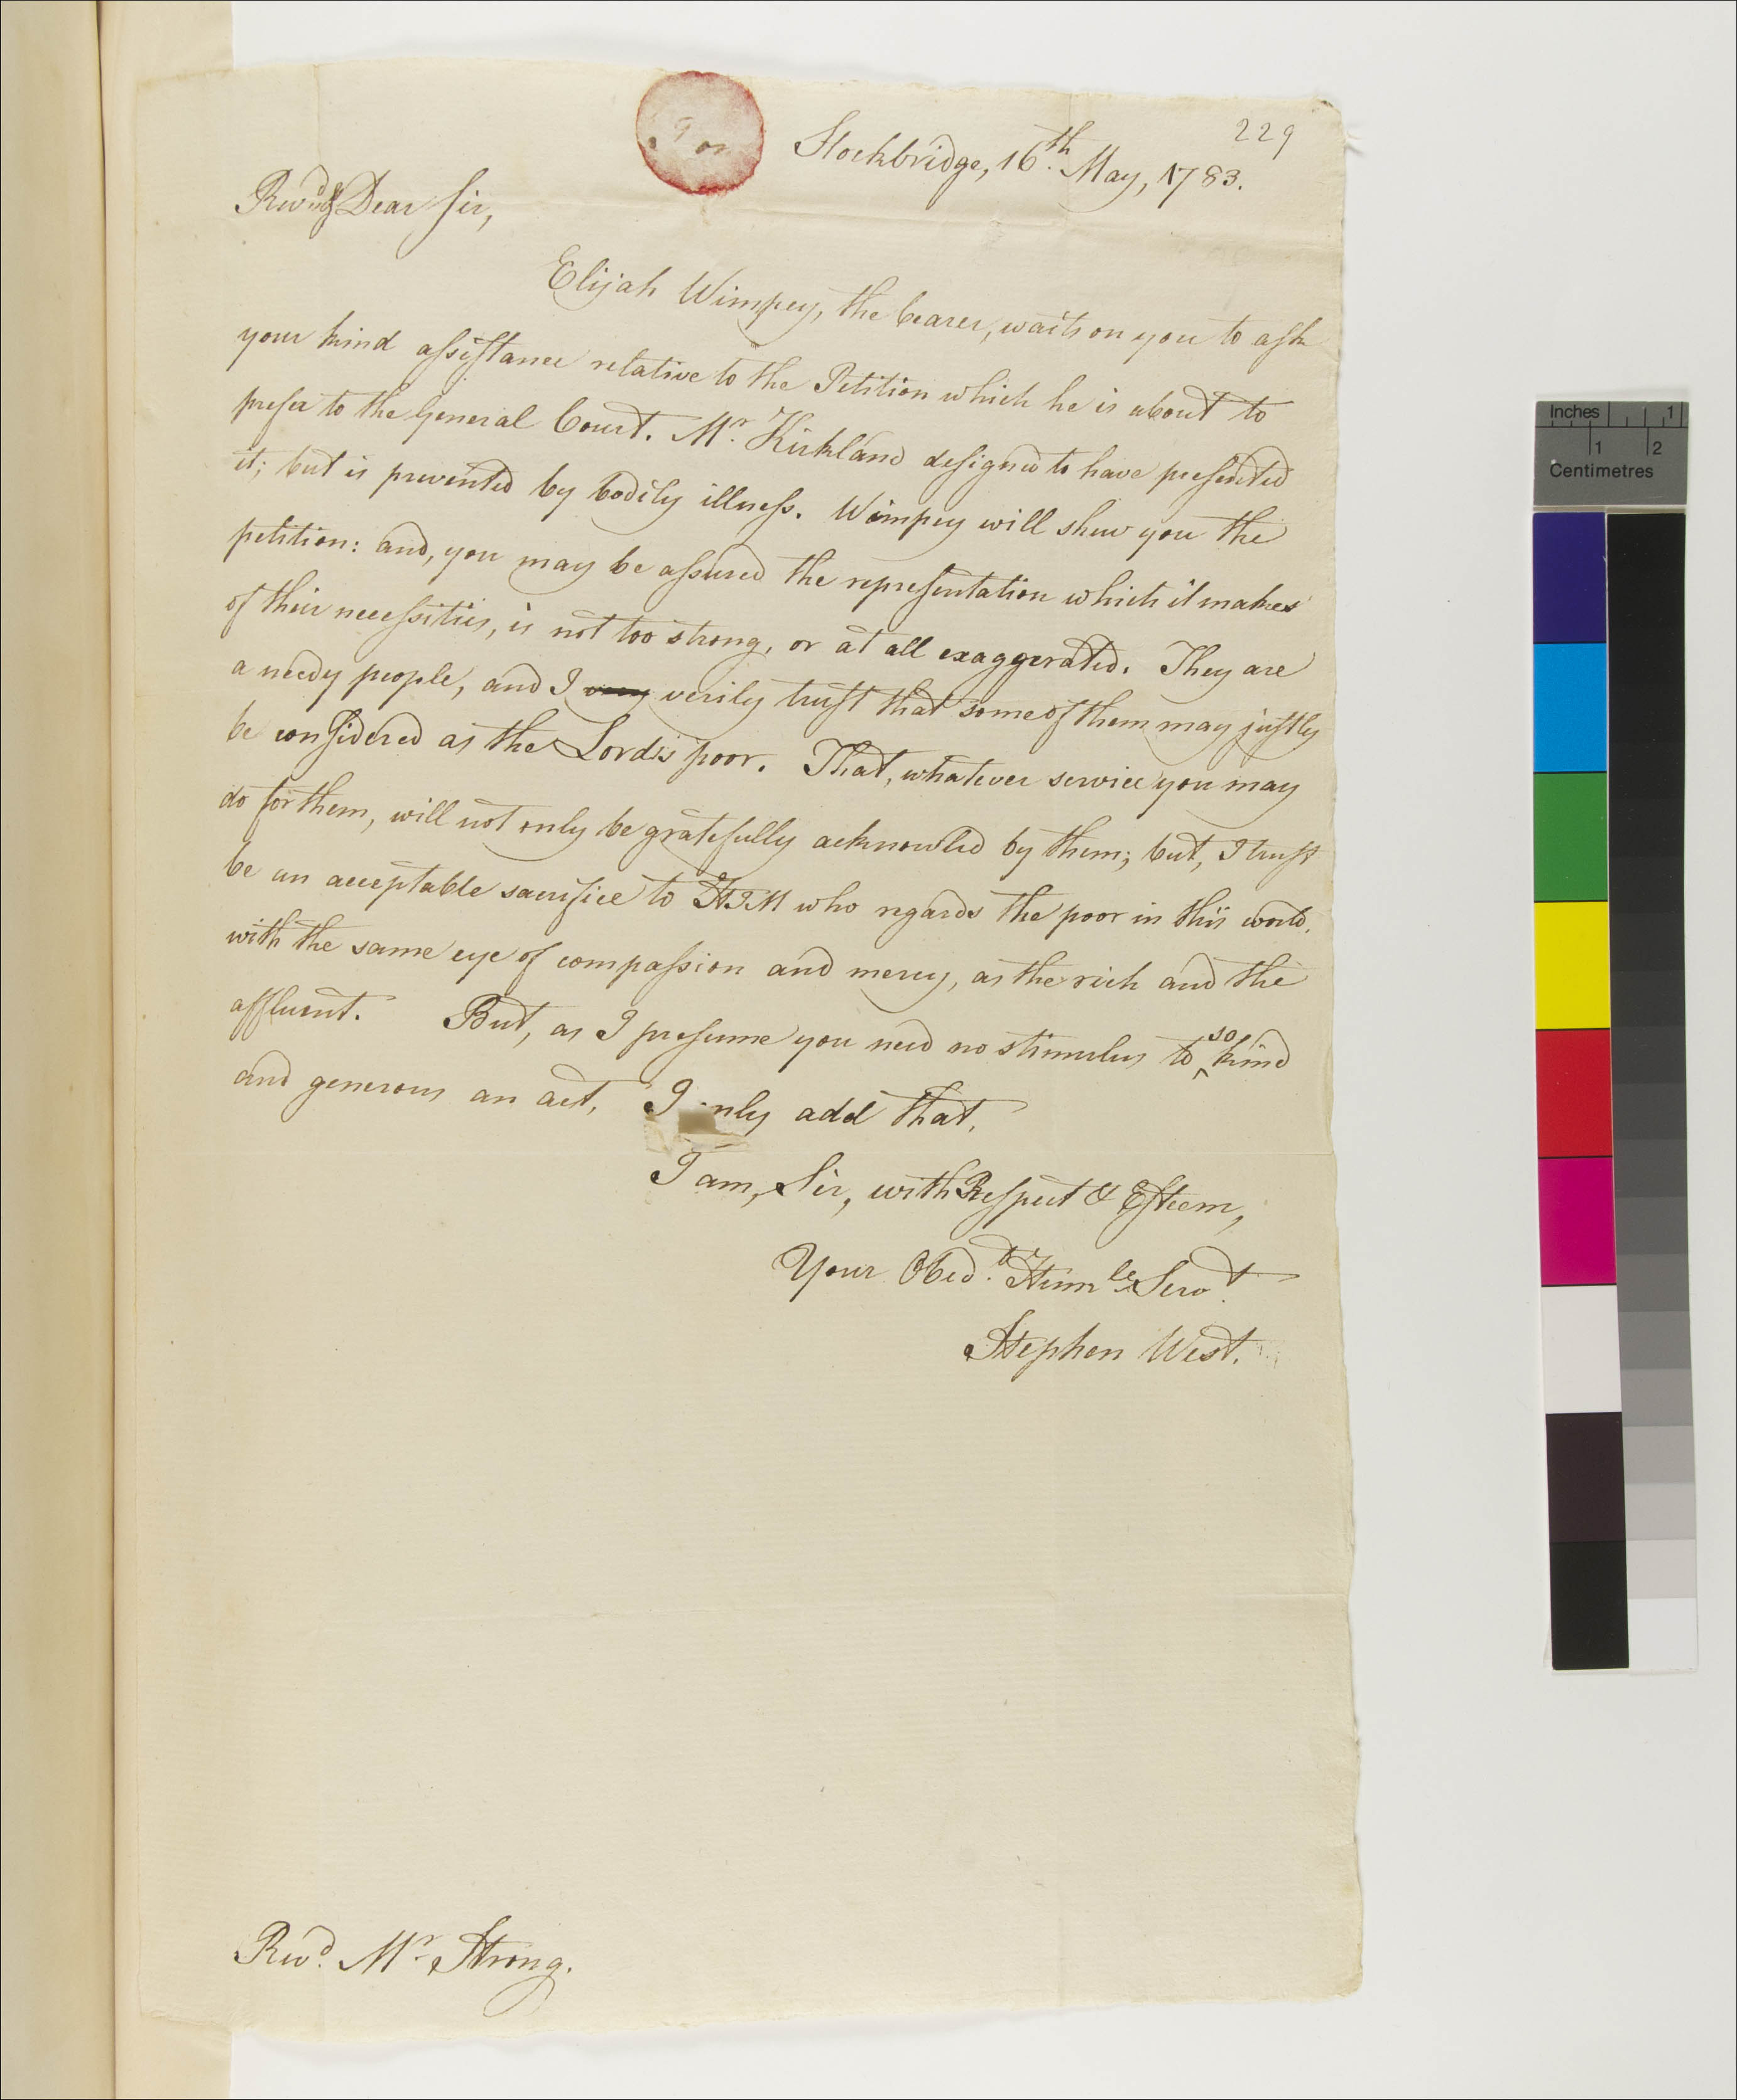 229
Stockbridge, 16th. May, 1783.
Revd. & Dear Sir,
Elijah Wimpey, the bearer, waits on you to ask
your kind assistance relative to the Petition which he is about to
prefer to the General Court. Mr. Kirkland designed to have presented
it; but is prevented by bodily illness. Wimpey will shew you the
petition: and, you may be assured the representation which it makes
of their necessities, is not too strong, or at all exaggerated. They are
a needy people, and I very verily trust that some of them may justly
be considered as the Lord's poor. That, whatever service you may
do for them, will not only be gratefully acknowled by them; but, I trust
be an acceptable sacrifice to HIM who regards the poor in this world,
with the same eye of compassion and mercy, as the rich and the
affluent. But, as I presume you need no stimulus to so kind
and generous an act, I only add that,
I am, Sir, with Respect & Esteem,
Your Obedt. Humle Servt.
Stephen West.
Revd. Mr. Strong.
Inches 1
1 2
Centimetres